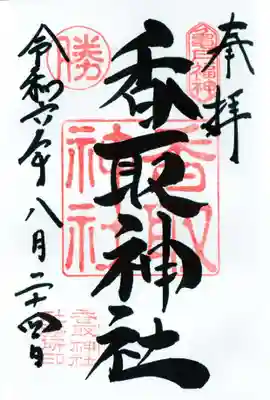 奉拝
亀戸福神
香取神社
香取神社
勝
令和六年八月二十四日
香取神社